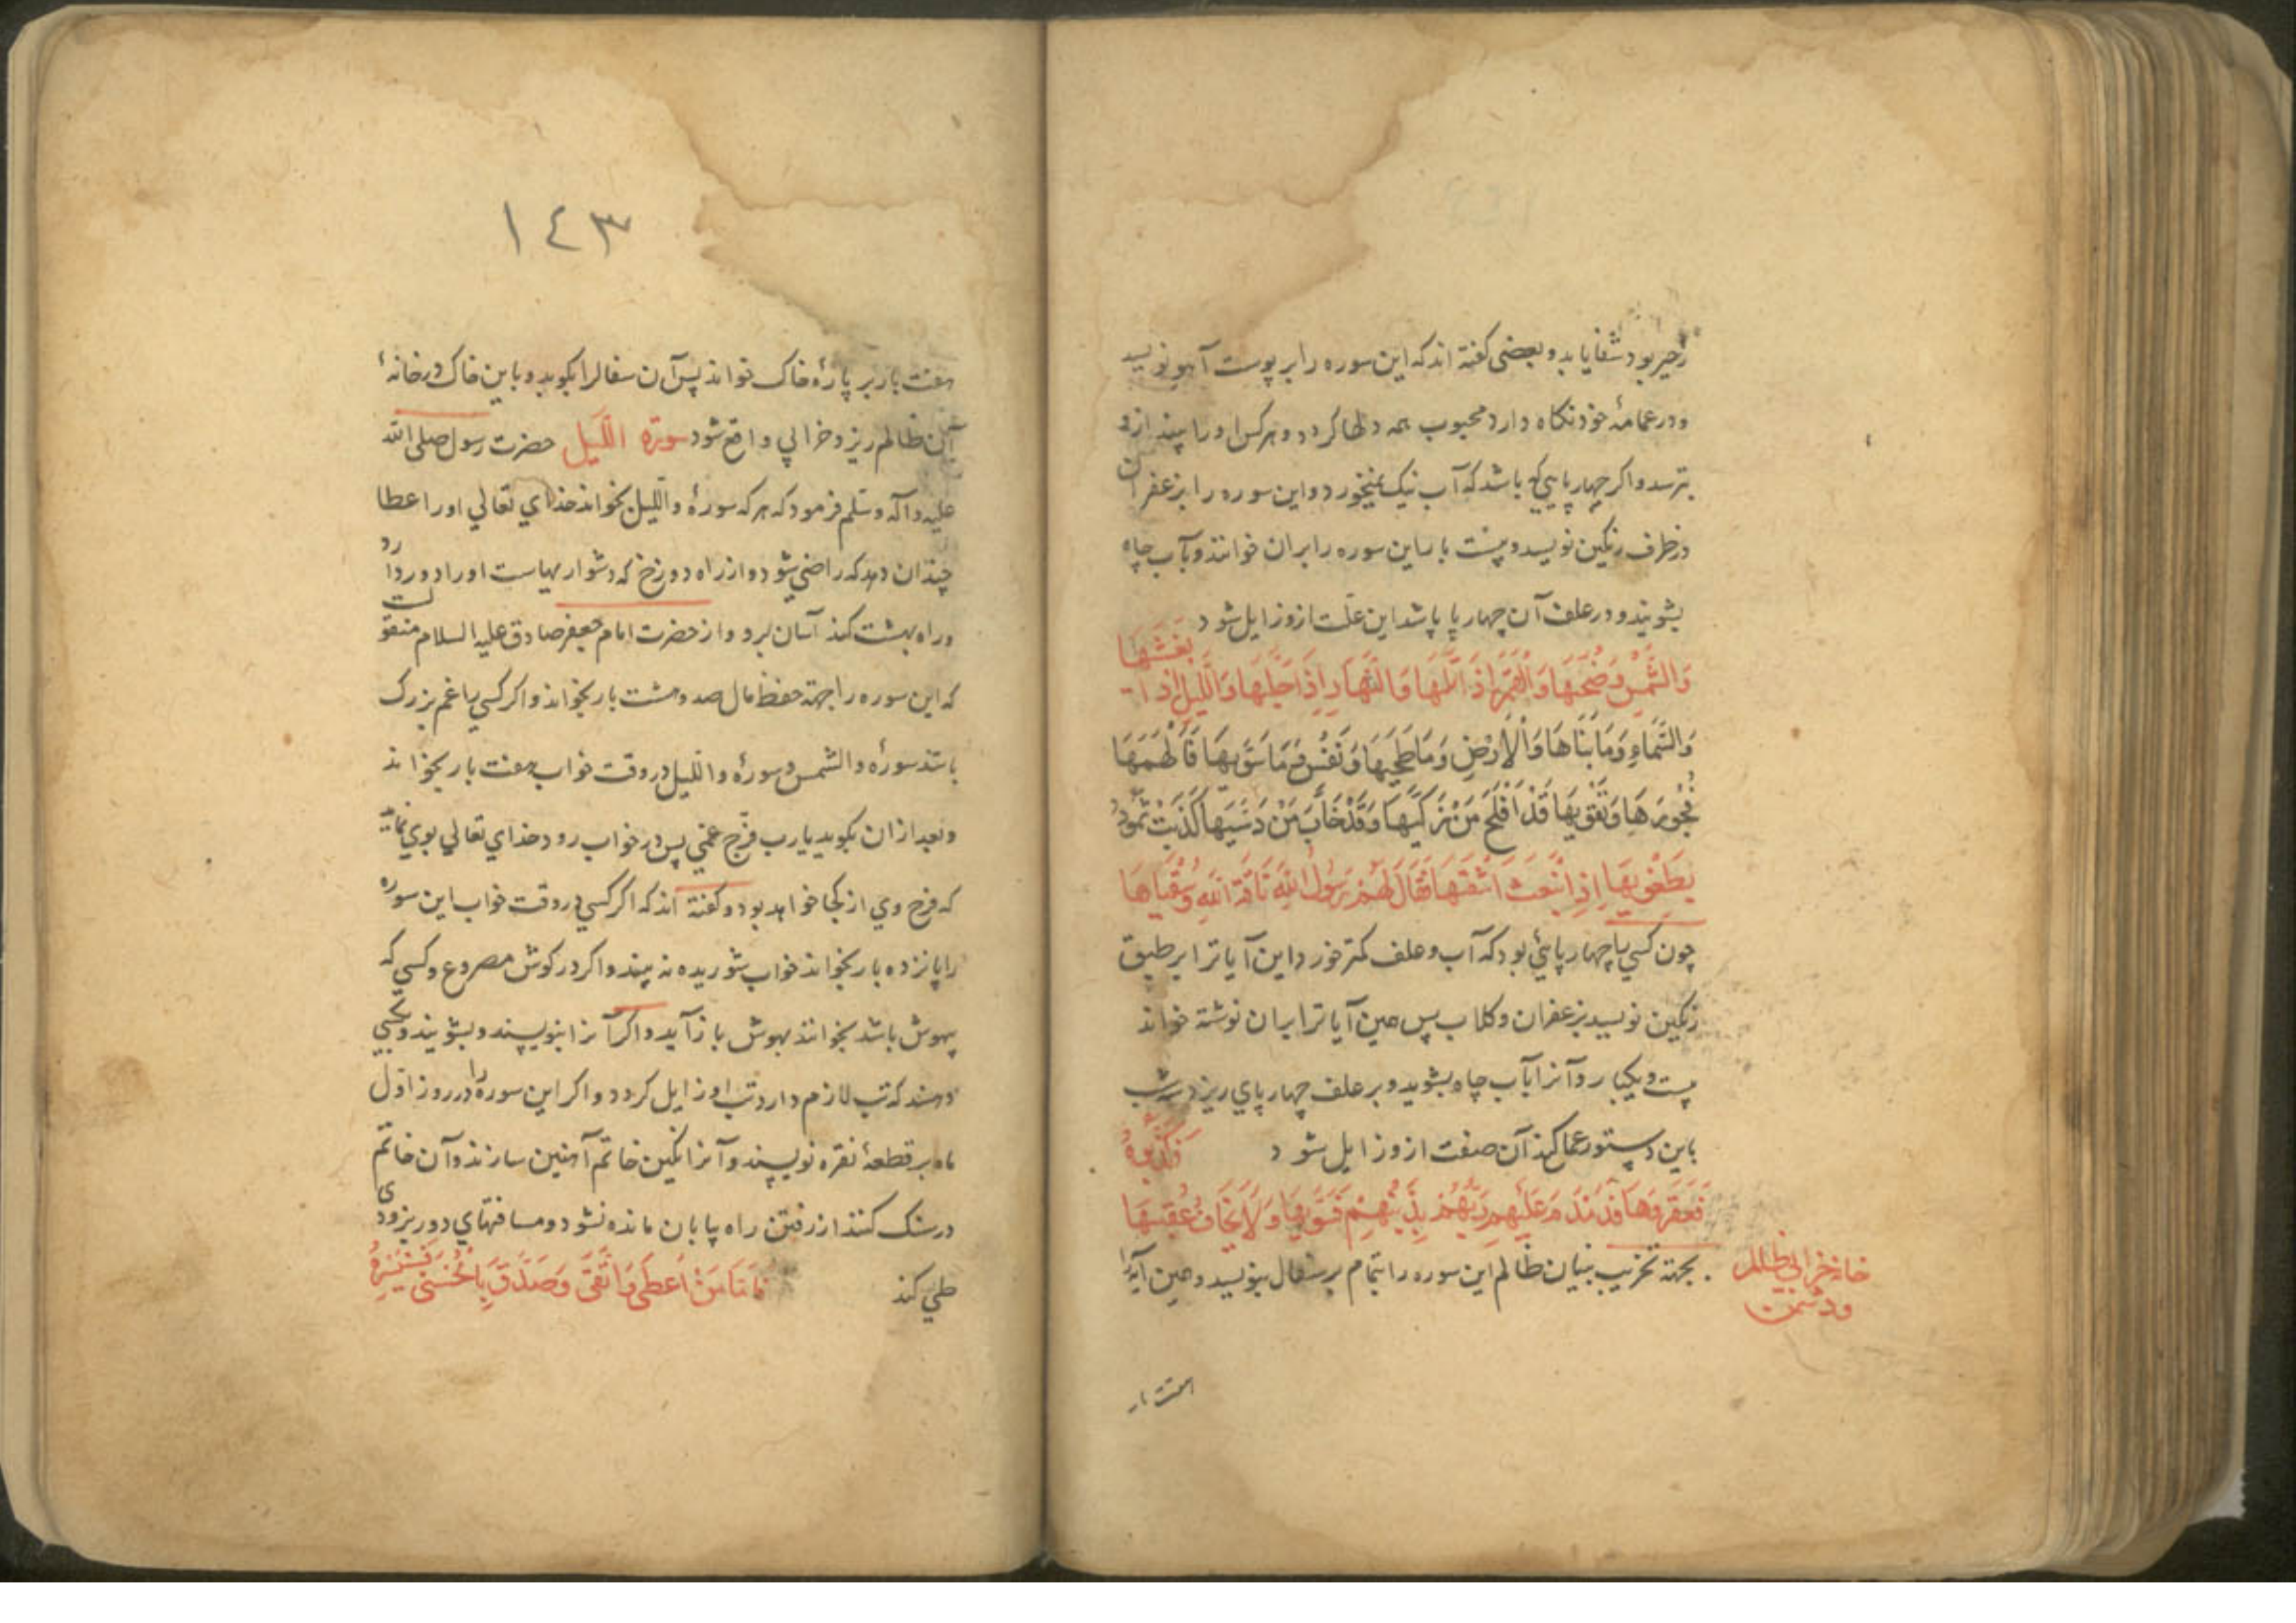 زحیر بود شفا یابد و بعضی گفته اند که این سوره را بر پوست آهو نویسد
و در عمامهٔ خود نکاه دارد محبوب همه دلها کردد و هر کس او را بیند ازو
بترسد و اکر چهارپایی باشد که آب نیک نمیخورد و این سوره را بزعفران
در ظرف رنکین نویسد و بیست بار این سوره را بران خوانند و بآب چاه
بشویند و در علف آن چهارپا پاشد این علّت ازو زایل شود
وَالشَّمْسِ وَضُحَیهَا وَالْقَمَرِ اِذَا تَلَیهَا وَالنَّهَارِ اِذَا جَلَّیهَا وَاللَّیْلِ اِذَا یَغْشَیهَا
وَالسَّمَاءِ وَمَا بَنَاهَا وَالْاَرْضِ وَمَا طَحَیهَا وَنَفْسٍ وَمَا سَوَّیهَا فَاَلْهَمَهَا
فُجُورَهَا وَتَقْوَیهَا قَدْ اَفْلَحَ مَنْ زَکَّیهَا وَقَدْ خَابَ مَنْ دَسَّیهَا کَذَّبَتْ ثَمُودُ
بِطَغْوَیهَا اِذِ انْبَعَثَ اَشْقَیهَا فَقَالَ لَهُمْ رَسُولُ اللّٰهِ نَاقَةَ اللّٰهِ وَسُقْیَاهَا
چون کسی با چهارپائی بود که آب و علف کمتر خورد این آیاترا بر طبق
رنکین نویسد بزعفران و کلاب پس همین آیاترا بران نوشته خواند
بیست و یکبار و آنرا بآب چاه بشوید و بر علف چهارپای ریزد سه شب
باین دستور عمل کند آن صفت ازو زایل شود فَکَذَّبُوهُ
فَعَقَرُوهَا فَدَمْدَمَ عَلَیْهِمْ رَبُّهُمْ بِذَنْبِهِمْ فَسَوَّیهَا وَلَا یَخَافُ عُقْبَیهَا
بجهة تخریب بنیان ظالم این سوره را بتمام بر سفال بنویسد و همین آیه را
خانه خرابی ظالم
و دشمن
هفت بار
١٤٣
هفت بار بر پارهٔ خاک خواند پس آن سفالرا بکوبد و باین خاک در خانهٔ
آن ظالم ریزد خرابی واقع شود سورة اللّیل حضرت رسول صلی الله
علیه وآله وسلم فرمود که هر که سورهٔ واللیل بخواند خدای تعالی او را عطا
چندان دهد که راضی شود و از راه دوزخ که دشوار بهاست او را دور دارد
و راه بهشت کند آسان برو و از حضرت امام جعفر صادق علیه السلام منقولست
که این سوره را جهة حفظ مال صد و هشت بار بخواند و اکر کسی با غم بزرک
باشد سورهٔ والشمس و سورهٔ واللیل در وقت خواب هفت بار بخواند
و بعد ازان بکوید یارب فرّج عنّی پس در خواب رود خدای تعالی بوی نماید
که فرج وی از کجا خواهد بود و کفته اند که اکر کسی در وقت خواب این سوره
را پانزده بار بخواند خواب شوریده نه بیند و اکر در کوش مصروع و کسی که
بیهوش باشد بخوانند بهوش باز آید و اکر آنرا بنویسند و بشویند و بکسی
دهند که تب لازم دارد تب او زایل کردد و اکر این سوره را در روز اوّل
ماه بر قطعهٔ نقره نویسند و آنرا نکین خاتم آهنین سازند و آن خاتم
در سنک کنند از رفتن راه بیابان مانده نشود و مسافتهای دور بزودی
طی کند فَاَمَّا مَنْ اَعْطَی وَاتَّقَی وَصَدَّقَ بِالْحُسْنَی فَسَنُیَسِّرُهُ